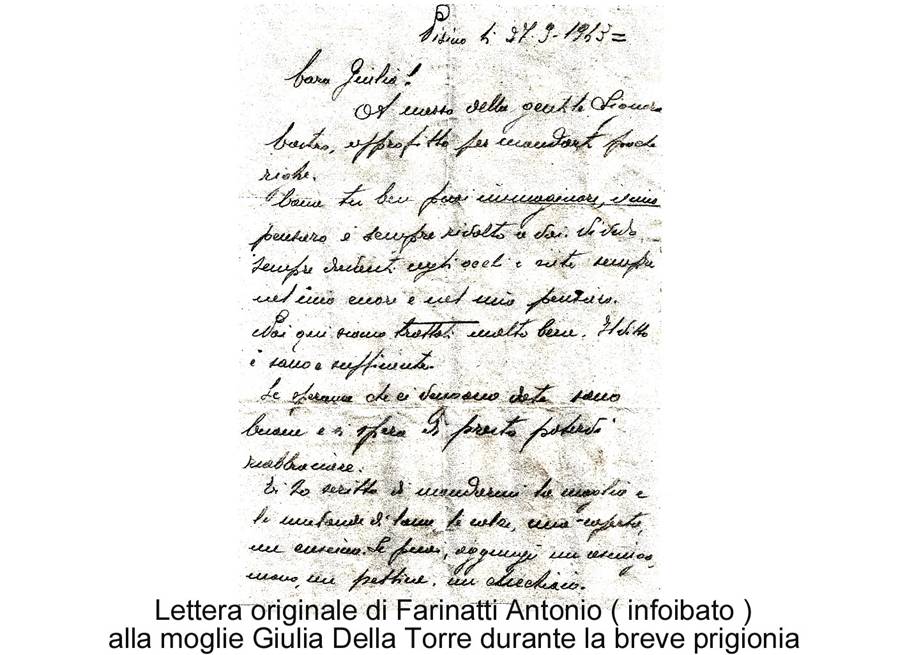 Pisino li 27.9-1943=
Cara Giulia!
A mezzo della gentile Signora
approfitto per mandarti poche
righe.
Come tu ben puoi immaginare, il mio
pensiero è sempre rivolto a voi. Vi vedo
sempre davanti agli occhi e siete sempre
nel mio cuore e nel mio pensiero.
Noi qui siamo trattati molto bene. Il vitto
è sano e sufficiente.
Le speranze che ci vengono date sono
buone e si spera di presto potervi
riabbracciare.
Ti ho scritto di mandarmi la maglia e
le mutande di lana, le calze, una coperta,
un cuscino. Se puoi, aggiungi un asciuga
mano, un pettine, un
Lettera originale di Farinatti Antonio ( infoibato )
alla moglie Giulia Della Torre durante la breve prigionia